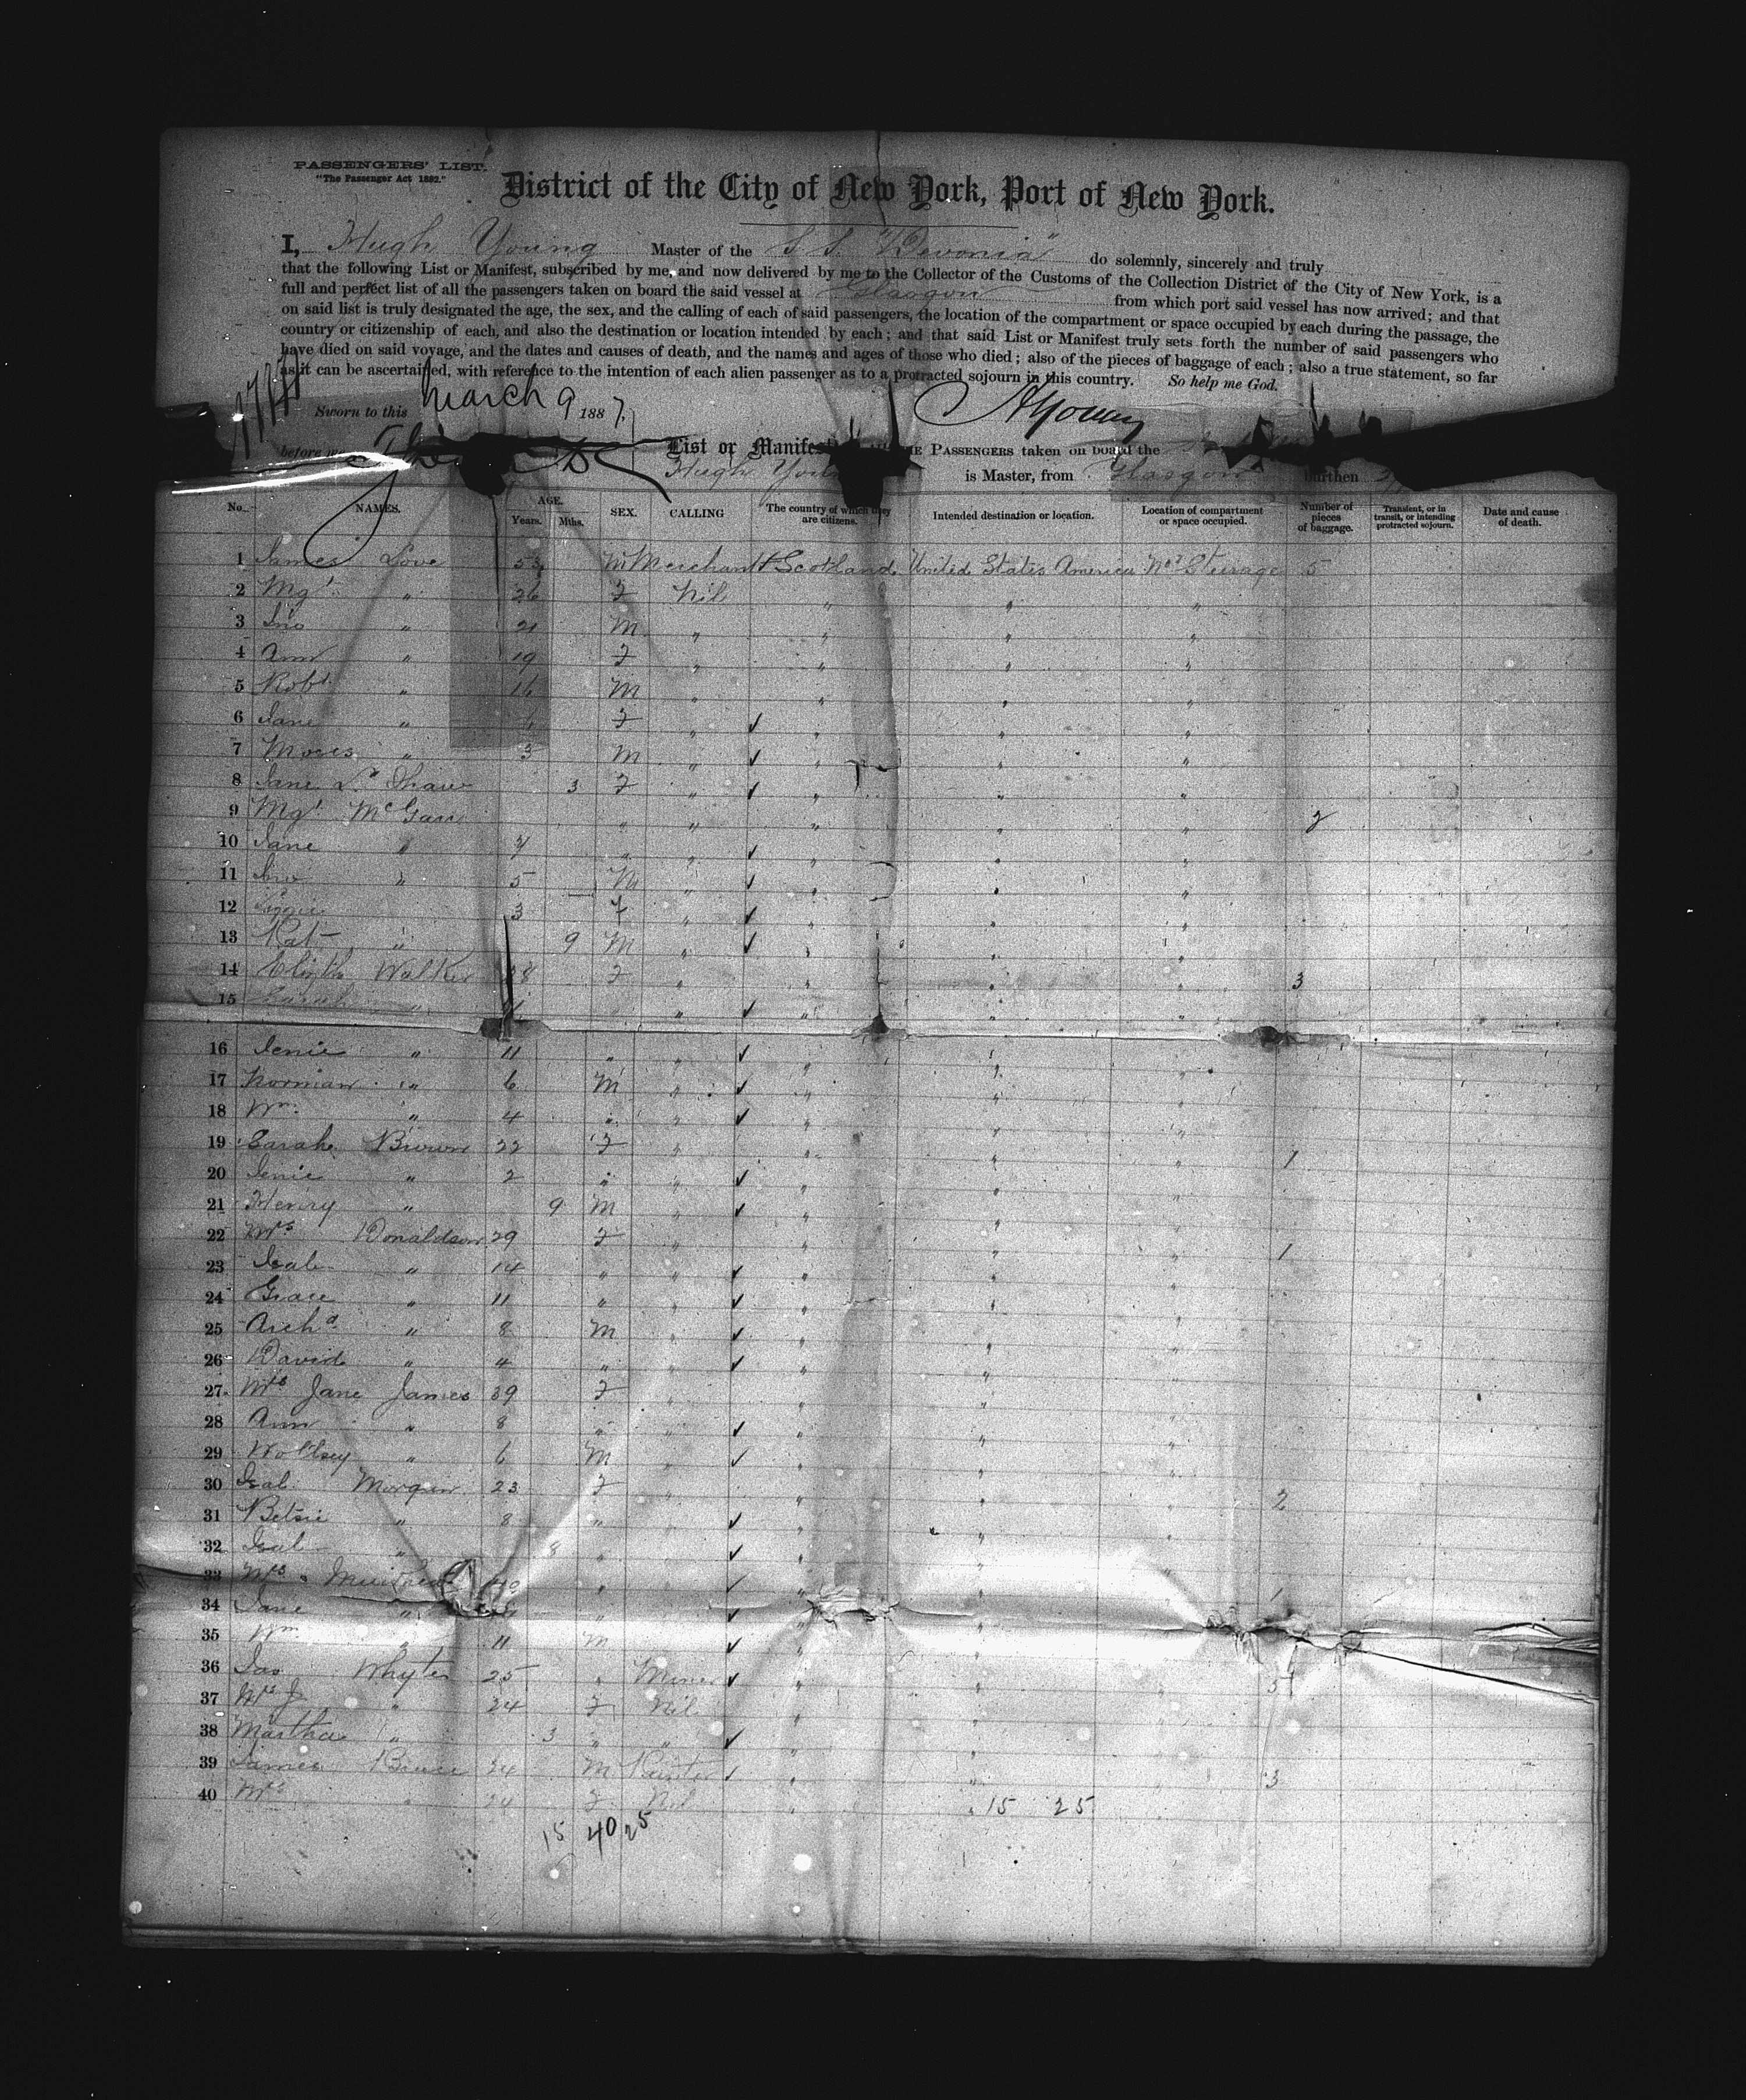 PASSENGERS' LIST.
"The Passenger Act 1882."
District of the City of New York, Port of New York.
I, Hugh Young Master of the S. S. "Devonia" do solemnly, sincerely and truly
that the following List or Manifest, subscribed by me, and now delivered by me to the Collector of the Customs of the Collection District of the City of New York, is a
full and perfect list of all the passengers taken on board the said vessel at Glasgow from which port said vessel has now arrived; and that
on said list is truly designated the age, the sex, and the calling of each of said passengers, the location of the compartment or space occupied by each during the passage, the
country or citizenship of each, and also the destination or location intended by each; and that said List or Manifest truly sets forth the number of said passengers who
have died on said voyage, and the dates and causes of death, and the names and ages of those who died; also of the pieces of baggage of each; also a true statement, so far
as it can be ascertained, with reference to the intention of each alien passenger as to a protracted sojourn in this country. So help me God.
Sworn to this March 9 1887. HYoung
before
List or Manifest THE PASSENGERS taken on board the
Hugh Young is Master, from Glasgow burthen
No. NAMES. AGE. Years. Mths. SEX. CALLING The country of which they are citizens. Intended destination or location. Location of compartment or space occupied. Number of pieces of baggage. Transient, or in transit, or intending protracted sojourn. Date and cause of death.
1 James Love 53 M Merchant Scotland United States America Steerage 5
2 Mgt " 26 F Nil " " "
3 Jno " 21 M " " " "
4 Ann " 19 F " " " "
5 Robt " 16 M " " " "
6 Jane " F " ✓ " " "
7 Moses " 3 M " ✓ " " "
8 Jane Shaw 3 F " ✓ " " "
9 Mgt " " " " " 2
10 Jane " 7 " " ✓ " " "
11 " 5 M " ✓ " " "
12 Lizzie 3 F " ✓ " " "
13 Pat " 9 M " ✓ " " "
14 Walker F " " " " 3
15 Sarah " " ✓ " " "
16 Jenie " 11 " " ✓ " " "
17 Norman " 6 M " ✓ " " "
18 Wm " 4 " " ✓ " " "
19 Sarah Brown 22 F " " " " 1
20 Jenie " 2 " " ✓ " " "
21 Henry " 9 M " ✓ " " "
22 Mrs Donaldson 29 F " " " " 1
23 Isab " 14 " " ✓ " " "
24 Grace " 11 " " ✓ " " "
25 Archd " 8 M " ✓ " " "
26 David " 4 " " ✓ " " "
27 Mrs Jane James 39 F " " " "
28 Ann " 8 " " ✓ " " "
29 Wollsey " 6 M " ✓ " " "
30 Isab Morgan 23 F " " " " 2
31 Betsie " 8 " " ✓ " " "
32 Isab " 8 " " ✓ " " "
33 Mrs " ✓ " " " 1
34 Jane " " ✓ " " "
35 Wm " 11 M ✓ " " "
36 Jas Whyte 25 " Miner ✓ " " " 5
37 Mrs J " 24 F Nil " " "
38 Martha " 3 " " ✓ " " "
39 James Bruce 24 M ✓ " " " 3
40 Mrs " 24 F Nil " " 15 25
15 40 25